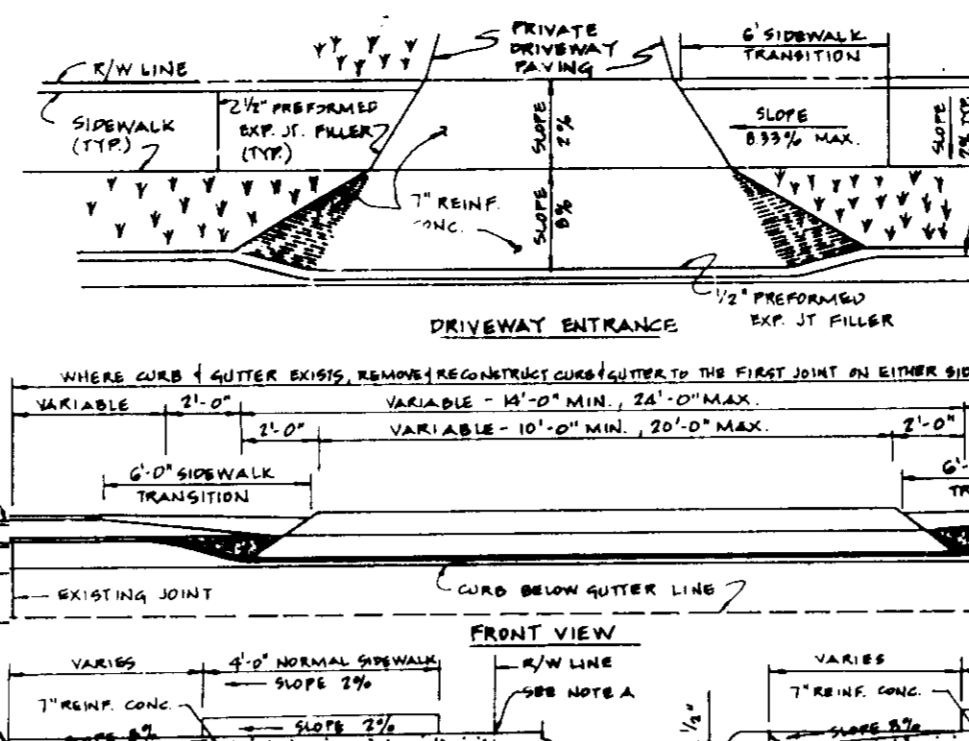 PRIVATE
DRIVEWAY
PAVING
6' SIDEWALK
TRANSITION
R/W LINE
SIDEWALK
(TYP.)
2 1/2" PREFORMED
EXP. JT. FILLER
(TYP.)
SLOPE
2%
SLOPE
8.33% MAX.
SLOPE
2% TYP.
7" REINF.
CONC.
SLOPE
8%
1/2" PREFORMED
EXP. JT FILLER
DRIVEWAY ENTRANCE
WHERE CURB & GUTTER EXISTS, REMOVE & RECONSTRUCT CURB & GUTTER TO THE FIRST JOINT ON EITHER SID
VARIABLE
2'-0"
VARIABLE - 14'-0" MIN., 24'-0" MAX.
2'-0"
VARIABLE - 10'-0" MIN., 20'-0" MAX.
2'-0"
6'-0" SIDEWALK
TRANSITION
6'-
TR
EXISTING JOINT
CURB BELOW GUTTER LINE
FRONT VIEW
VARIES
4'-0" NORMAL SIDEWALK
SLOPE 2%
R/W LINE
SEE NOTE A
7" REINF. CONC.
SLOPE 8%
SLOPE 2%
1/2"
VARIES
7" REINF. CONC.
SLOPE 8%